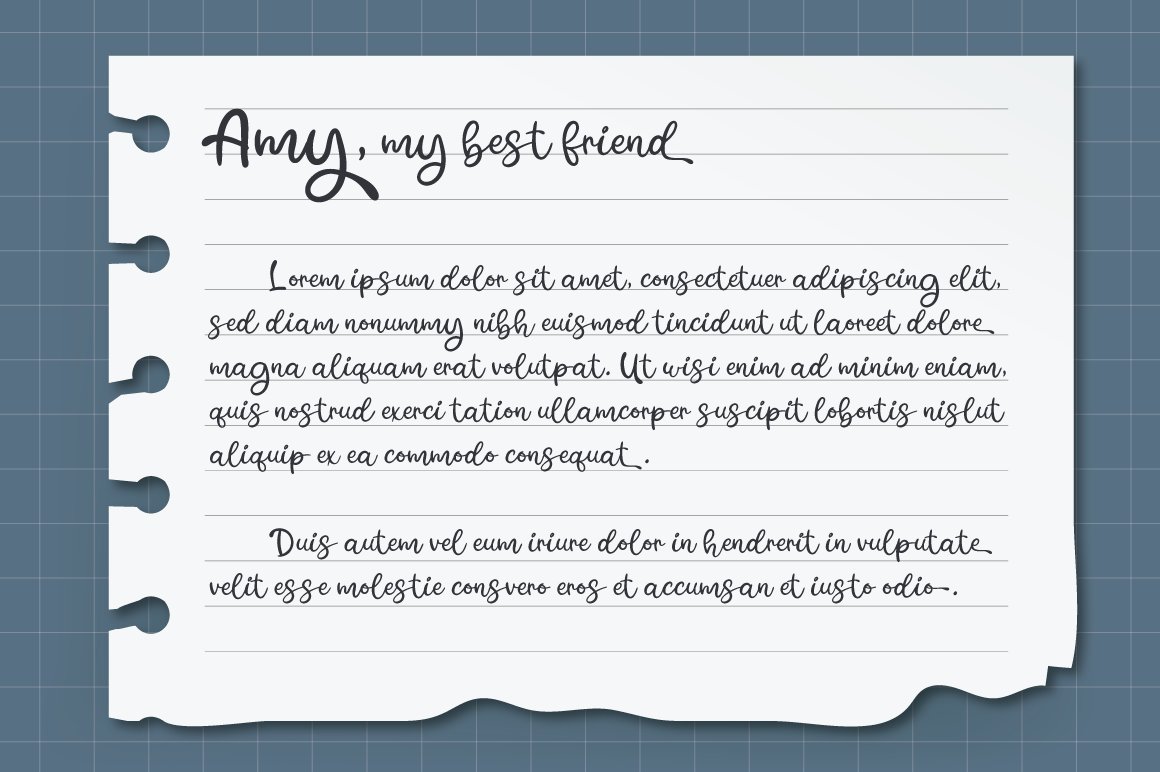 Amy, my best friend
Lorem ipsum dolor sit amet, consectetuer adipiscing elit,
sed diam nonummy nibh euismod tincidunt ut laoreet dolore
magna aliquam erat volutpat. Ut wisi enim ad minim eniam,
quis nostrud exerci tation ullamcorper suscipit lobortis nislut
aliquip ex ea commodo consequat.
Duis autem vel eum iriure dolor in hendrerit in vulputate
velit esse molestie consvero eros et accumsan et iusto odio.